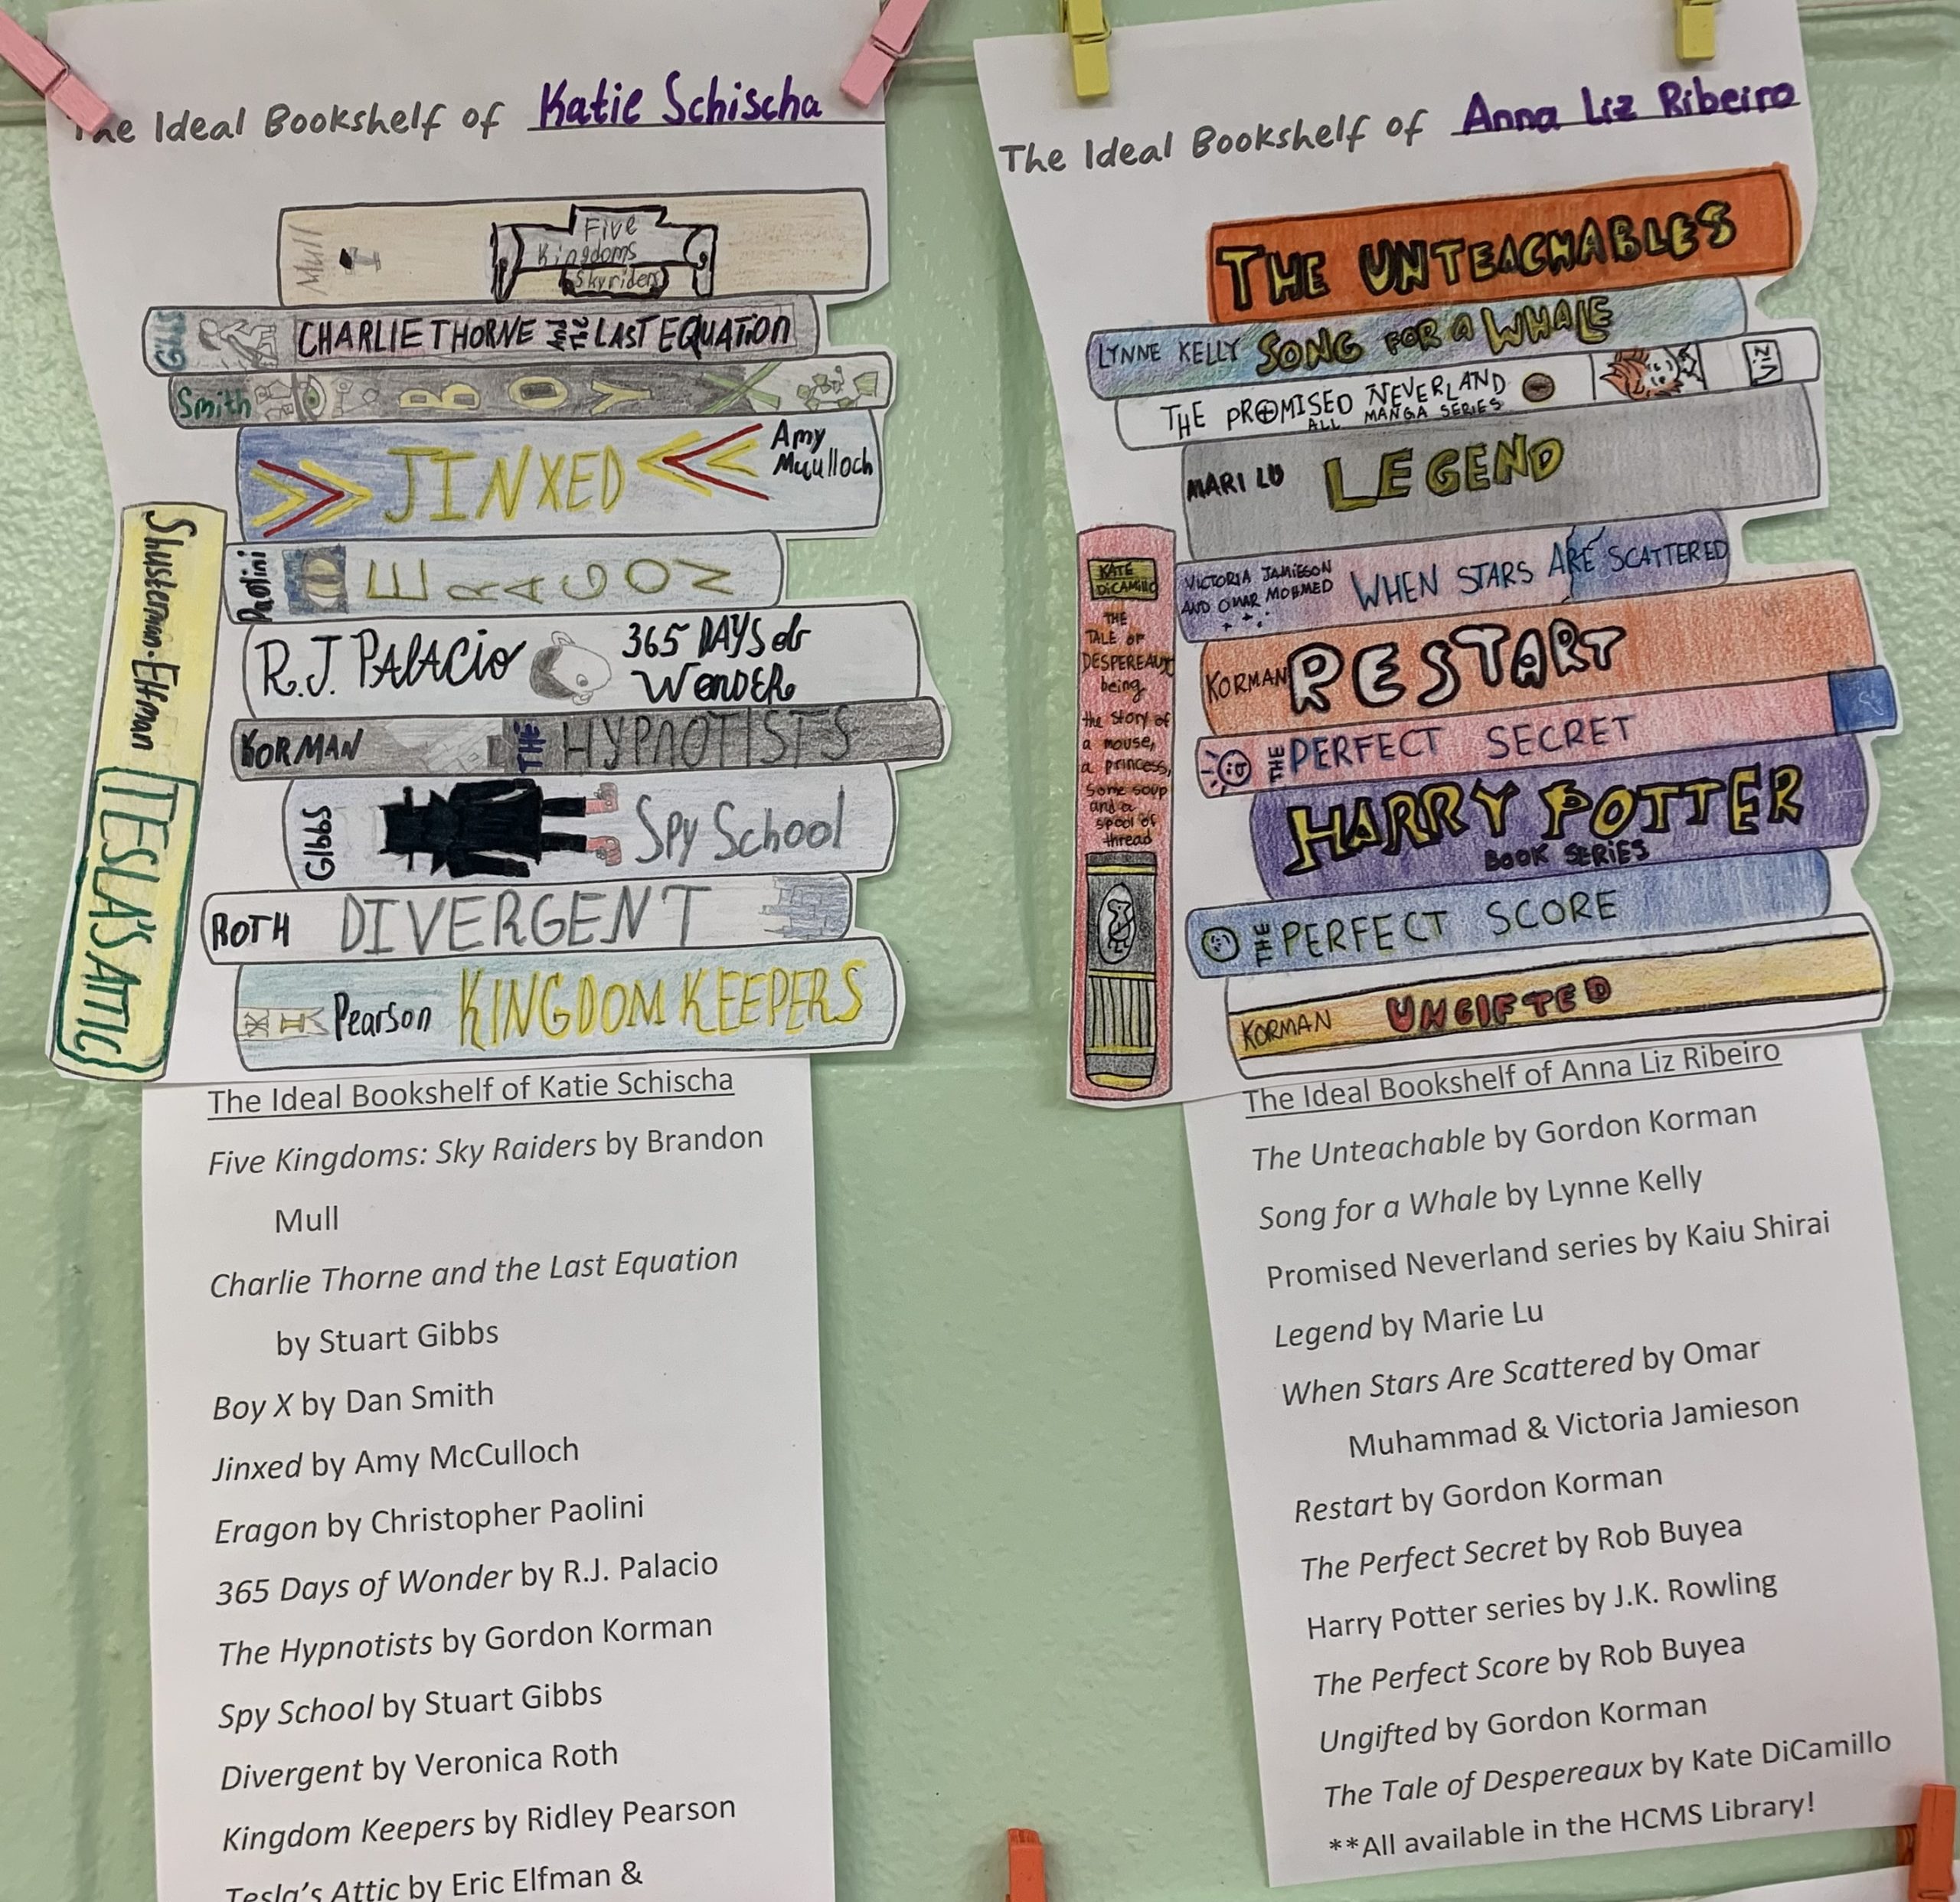 The Ideal Bookshelf of Katie Schischa
Mull
Five
Kingdoms
Skyriders
Gibbs
CHARLIE THORNE AND THE LAST EQUATION
Smith
BOY X
JINXED
Amy
Mcculloch
Paolini
ERAGON
R.J. PALACIO
365 DAYS of
WONDER
KORMAN
THE HYPNOTISTS
GIBBS
Spy School
ROTH
DIVERGENT
Pearson
KINGDOM KEEPERS
Shusterman·Elfman
TESLA'S ATTIC
The Ideal Bookshelf of Katie Schischa
Five Kingdoms: Sky Raiders by Brandon
Mull
Charlie Thorne and the Last Equation
by Stuart Gibbs
Boy X by Dan Smith
Jinxed by Amy McCulloch
Eragon by Christopher Paolini
365 Days of Wonder by R.J. Palacio
The Hypnotists by Gordon Korman
Spy School by Stuart Gibbs
Divergent by Veronica Roth
Kingdom Keepers by Ridley Pearson
Tesla's Attic by Eric Elfman &
The Ideal Bookshelf of Anna Liz Ribeiro
THE UNTEACHABLES
LYNNE KELLY
SONG FOR A WHALE
THE PROMISED NEVERLAND
ALL MANGA SERIES
VIZ
MARI LU
LEGEND
VICTORIA JAMIESON
AND OMAR MOHMED
WHEN STARS ARE SCATTERED
KORMAN
RESTART
THE PERFECT SECRET
HARRY POTTER
BOOK SERIES
THE PERFECT SCORE
KORMAN
UNGIFTED
KATE
DiCAMILLO
THE
TALE OF
DESPEREAUX
being
the story of
a mouse,
a princess,
some soup
and a
spool of
thread
The Ideal Bookshelf of Anna Liz Ribeiro
The Unteachable by Gordon Korman
Song for a Whale by Lynne Kelly
Promised Neverland series by Kaiu Shirai
Legend by Marie Lu
When Stars Are Scattered by Omar
Muhammad & Victoria Jamieson
Restart by Gordon Korman
The Perfect Secret by Rob Buyea
Harry Potter series by J.K. Rowling
The Perfect Score by Rob Buyea
Ungifted by Gordon Korman
The Tale of Despereaux by Kate DiCamillo
**All available in the HCMS Library!